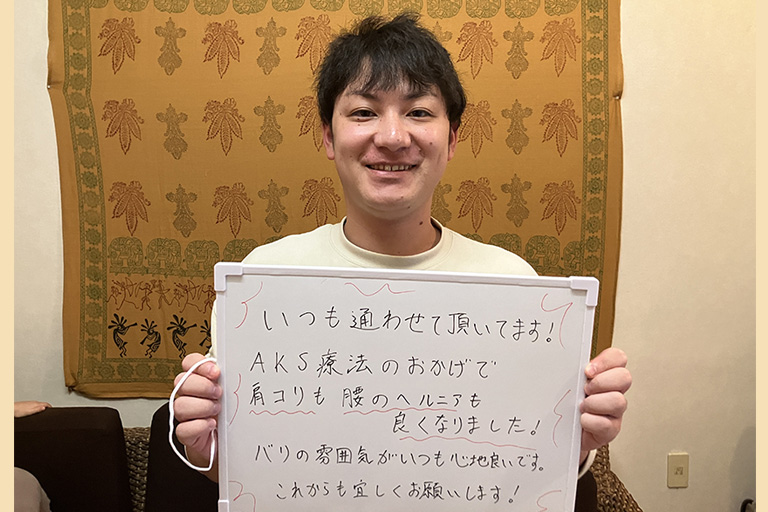 いつも通わせて頂いてます!
AKS療法のおかげで
肩コリも 腰のヘルニアも
良くなりました!
バリの雰囲気がいつも心地良いです。
これからも宜しくお願いします!